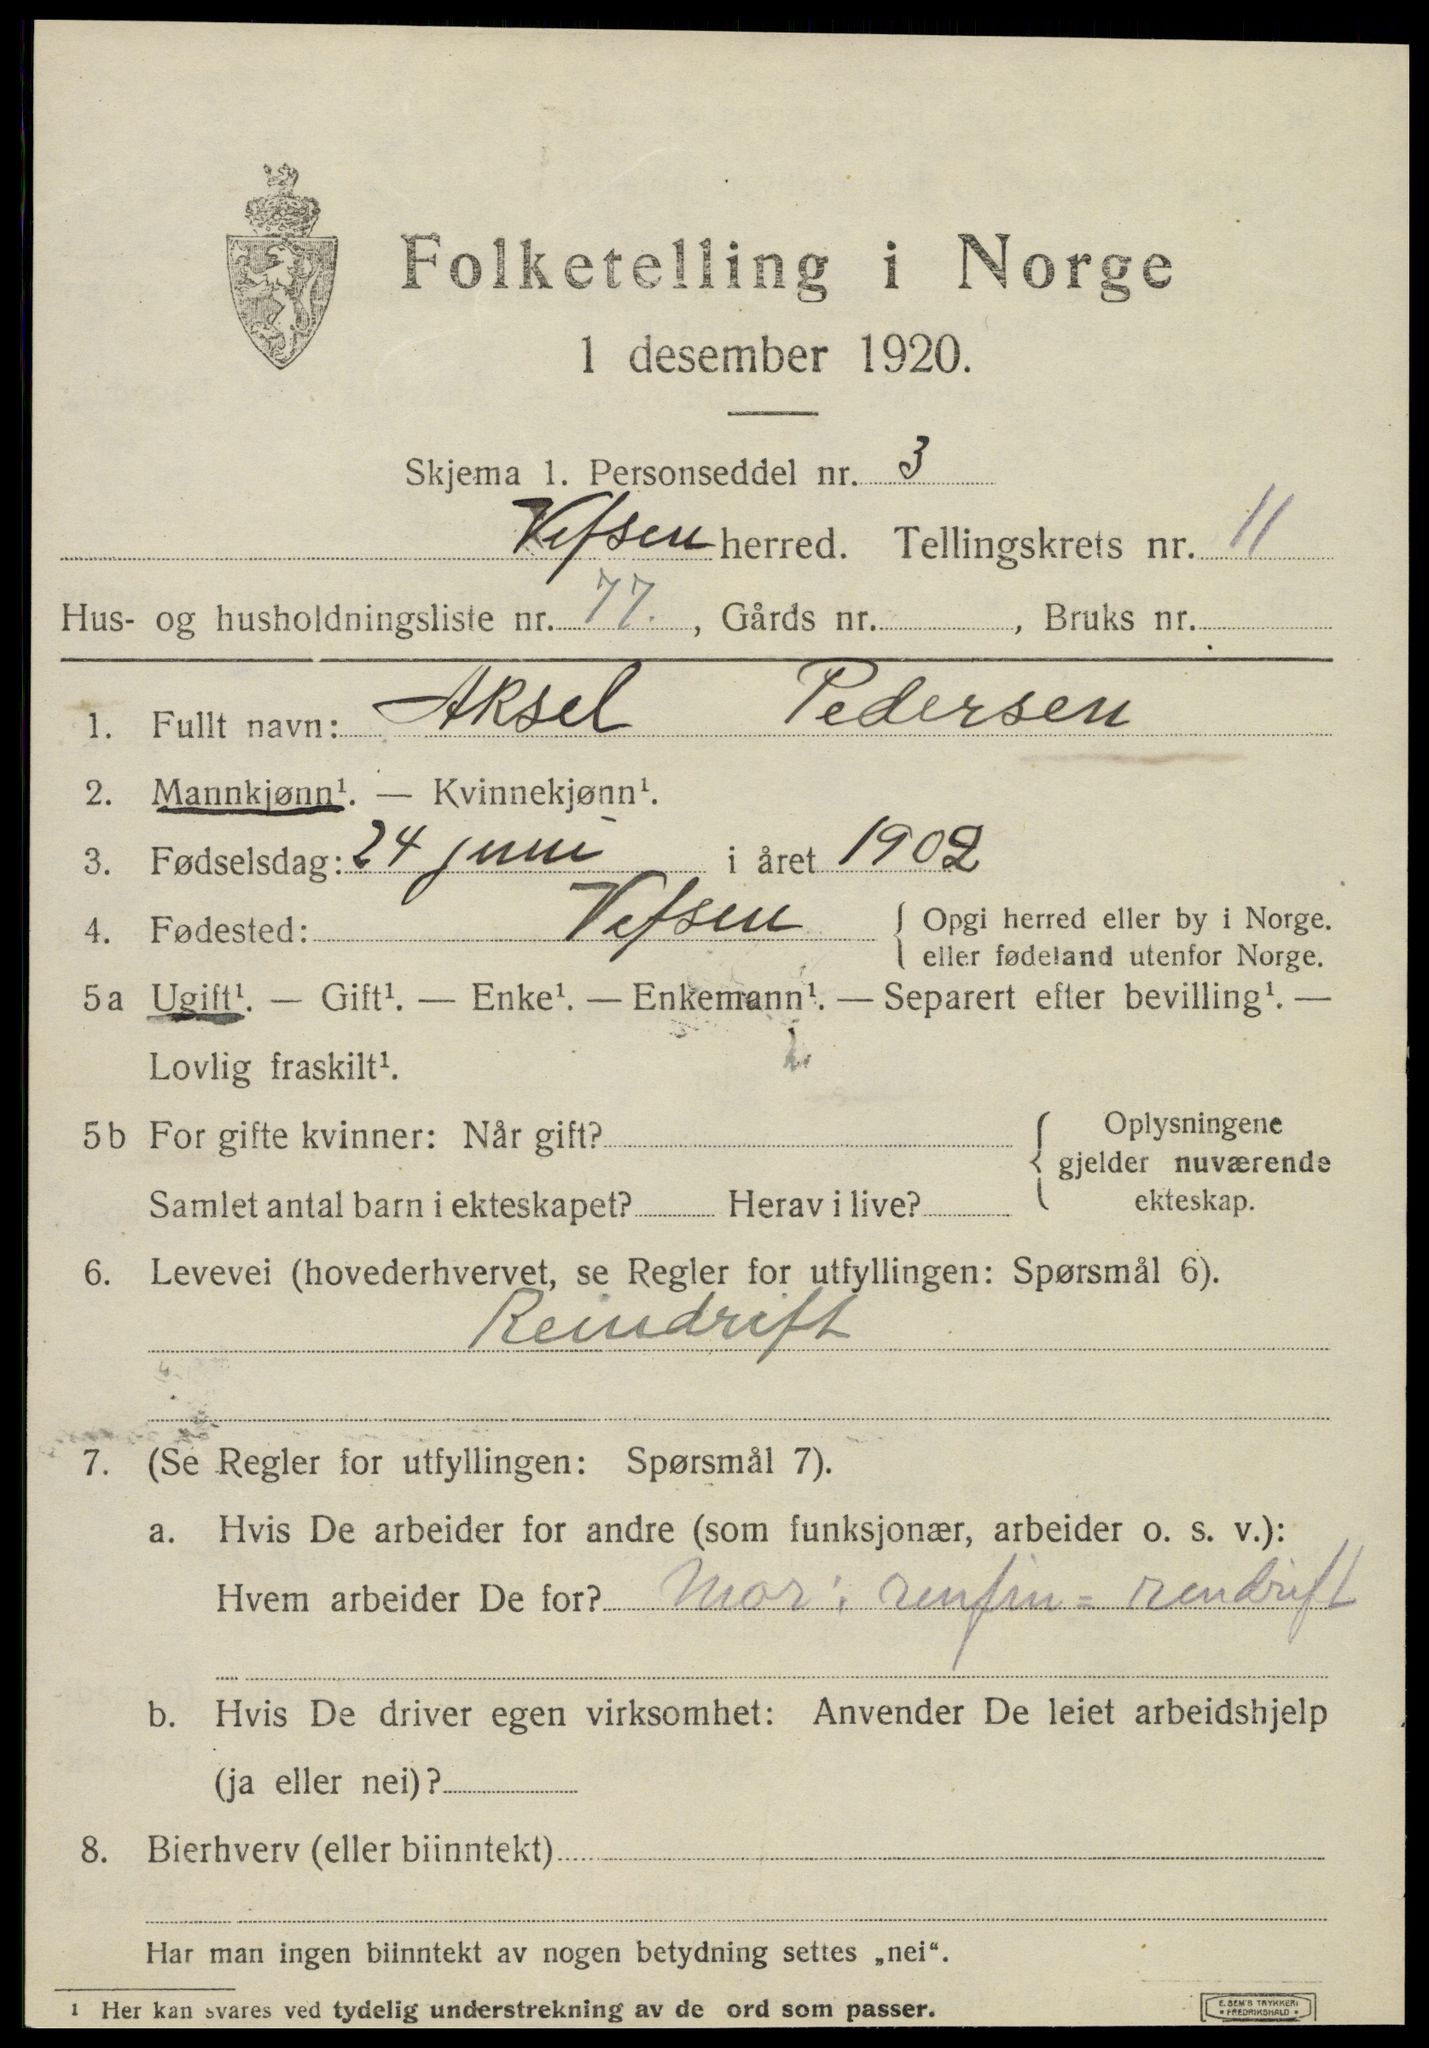 Folketelling i Norge
1 desember 1920.
Skjema 1. Personseddel nr. 3
Vefsen herred. Tellingskrets nr. 11
Hus- og husholdningsliste nr. 77., Gårds nr. , Bruks nr.
1. Fullt navn: Aksel Pedersen
2. Mannkjønn¹. — Kvinnekjønn¹.
3. Fødselsdag: 24 juni i året 1902
4. Fødested: Vefsen { Opgi herred eller by i Norge.
eller fødeland utenfor Norge.
5a Ugift¹. — Gift¹. — Enke¹. — Enkemann¹. — Separert efter bevilling¹. —
Lovlig fraskilt¹.
5b For gifte kvinner: Når gift? { Oplysningene
gjelder nuværende
Samlet antal barn i ekteskapet? Herav i live? ekteskap.
6. Levevei (hovederhvervet, se Regler for utfyllingen: Spørsmål 6).
Reindrift
7. (Se Regler for utfyllingen: Spørsmål 7).
a. Hvis De arbeider for andre (som funksjonær, arbeider o. s. v.):
Hvem arbeider De for? Mor: rendrift
b. Hvis De driver egen virksomhet: Anvender De leiet arbeidshjelp
(ja eller nei)?
8. Bierhverv (eller biinntekt)
Har man ingen biinntekt av nogen betydning settes „nei“.
¹ Her kan svares ved tydelig understrekning av de ord som passer.
E. SEM'S TRYKKERI
• FREDRIKSHALD •